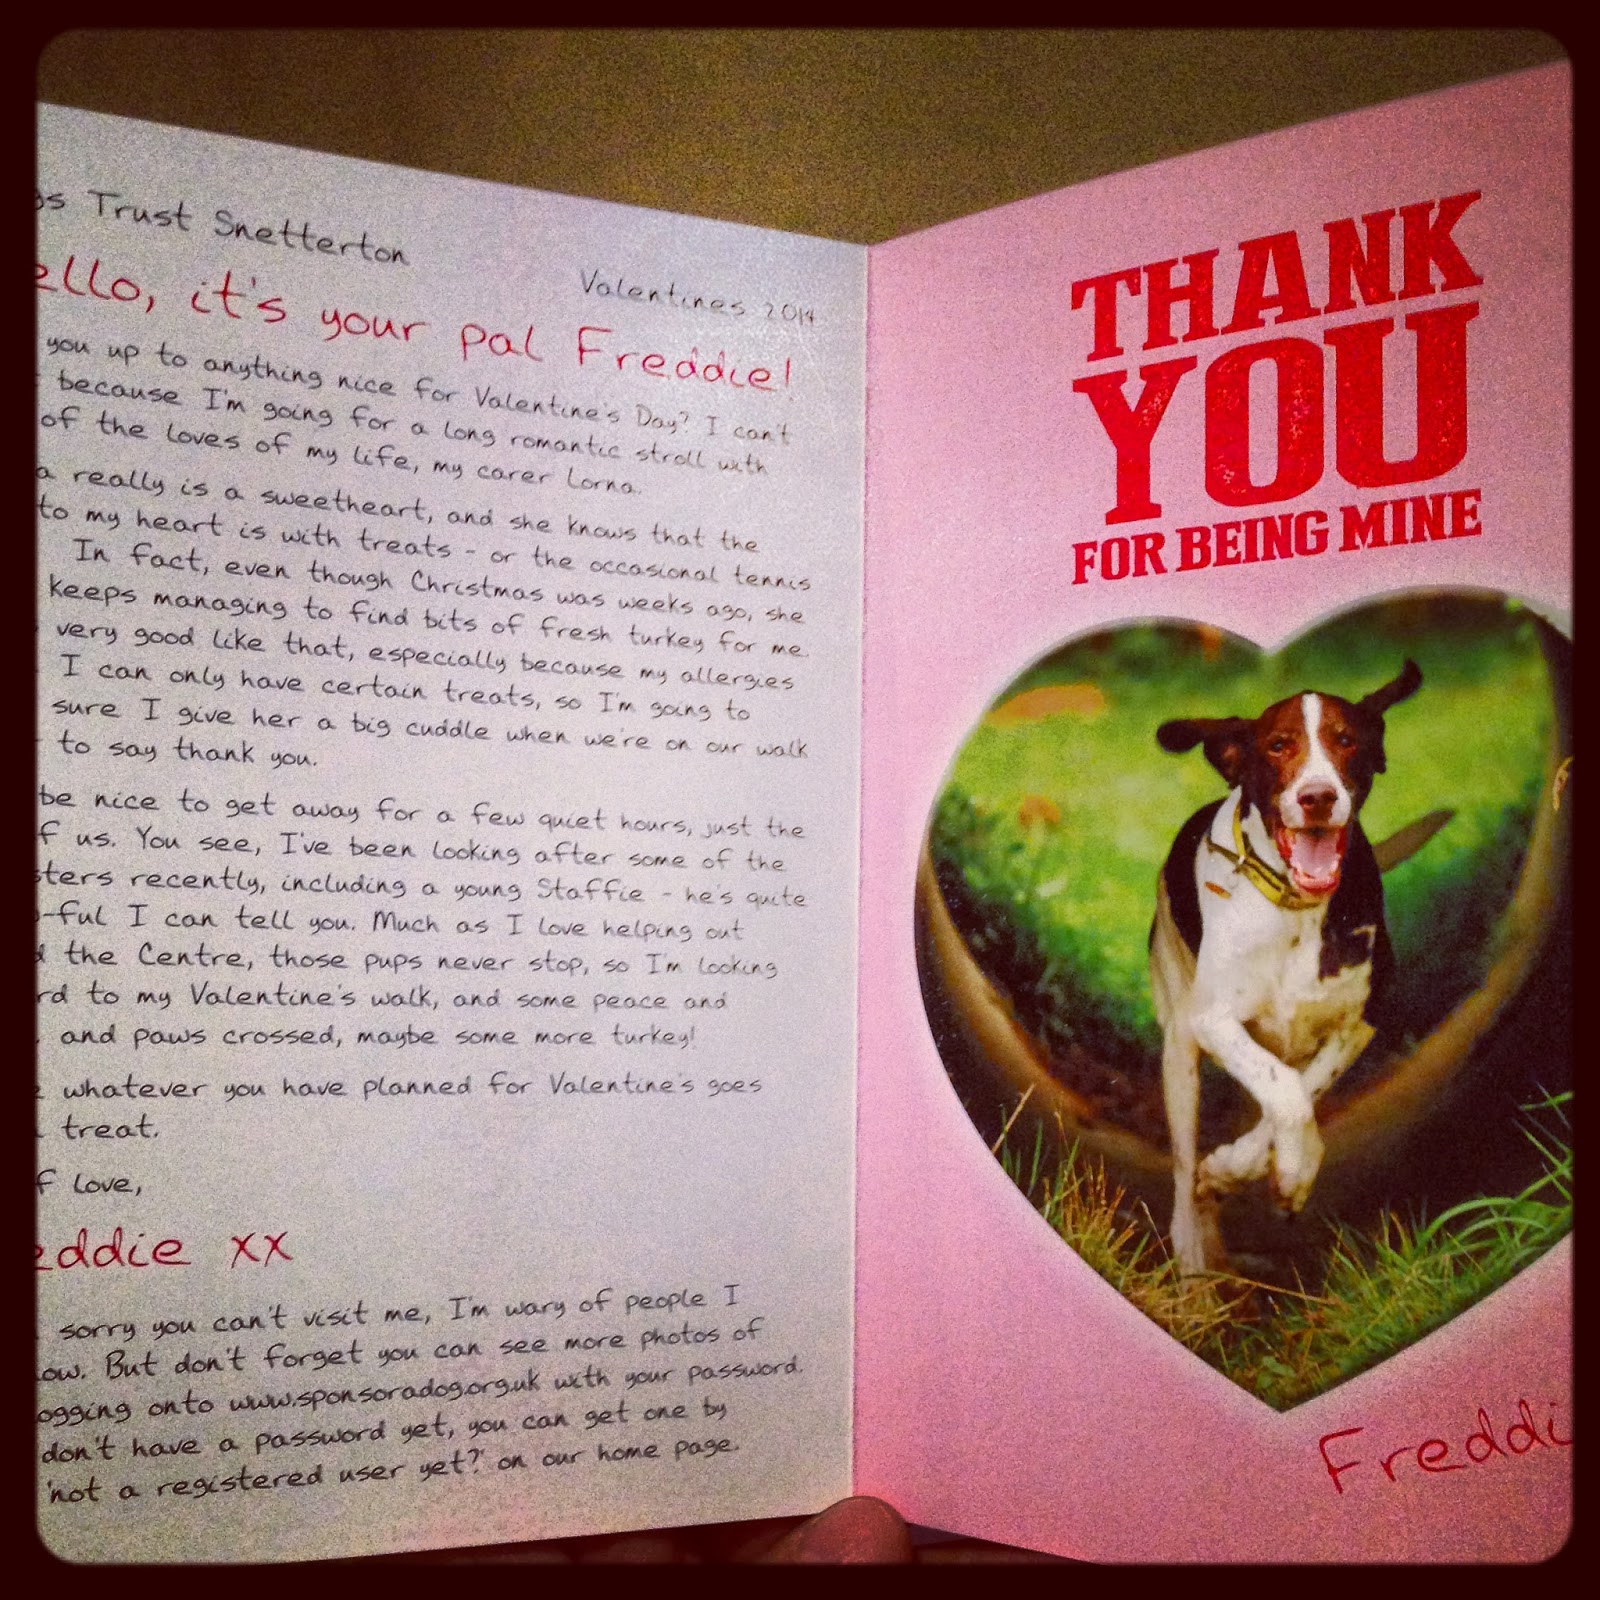 Trust Snetterton
Valentines 2014
ello, it's your pal Freddie!
you up to anything nice for Valentine's Day? I can't
because I'm going for a long romantic stroll with
of the loves of my life, my carer Lorna.
a really is a sweetheart, and she knows that the
to my heart is with treats - or the occasional tennis
In fact, even though Christmas was weeks ago, she
keeps managing to find bits of fresh turkey for me.
very good like that, especially because my allergies
I can only have certain treats, so I'm going to
sure I give her a big cuddle when we're on our walk
to say thank you.
be nice to get away for a few quiet hours, just the
f us. You see, I've been looking after some of the
sters recently, including a young Staffie - he's quite
-ful I can tell you. Much as I love helping out
d the Centre, those pups never stop, so I'm looking
rd to my Valentine's walk, and some peace and
and paws crossed, maybe some more turkey!
whatever you have planned for Valentine's goes
treat.
f love,
eddie xx
sorry you can't visit me, I'm wary of people I
ow. But don't forget you can see more photos of
ogging onto www.sponsoradog.org.uk with your password.
don't have a password yet, you can get one by
'not a registered user yet?' on our home page.
THANK
YOU
FOR BEING MINE
Freddi